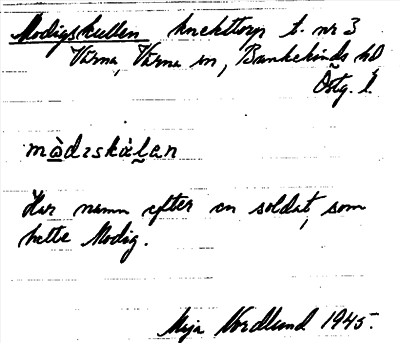 Modigskullen knekttorp t. nr 3
Värna, Värna sn, Bankekinds hd
Östg. l.
mòdıskàlan
Har namn efter en soldat, som
hette Modig.
Maja Nordlund 1945.